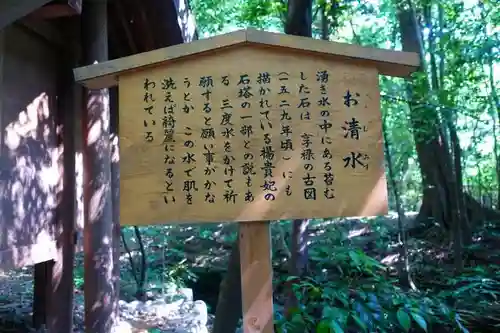 お清水
しみず
湧き水の中にある苔む
した石は、享禄の古図
(一五二九年頃)にも
描かれている楊貴妃の
石塔の一部との説もあ
る 三度水をかけて祈
願すると願い事がかな
うとか この水で肌を
洗えば綺麗になるとい
われている